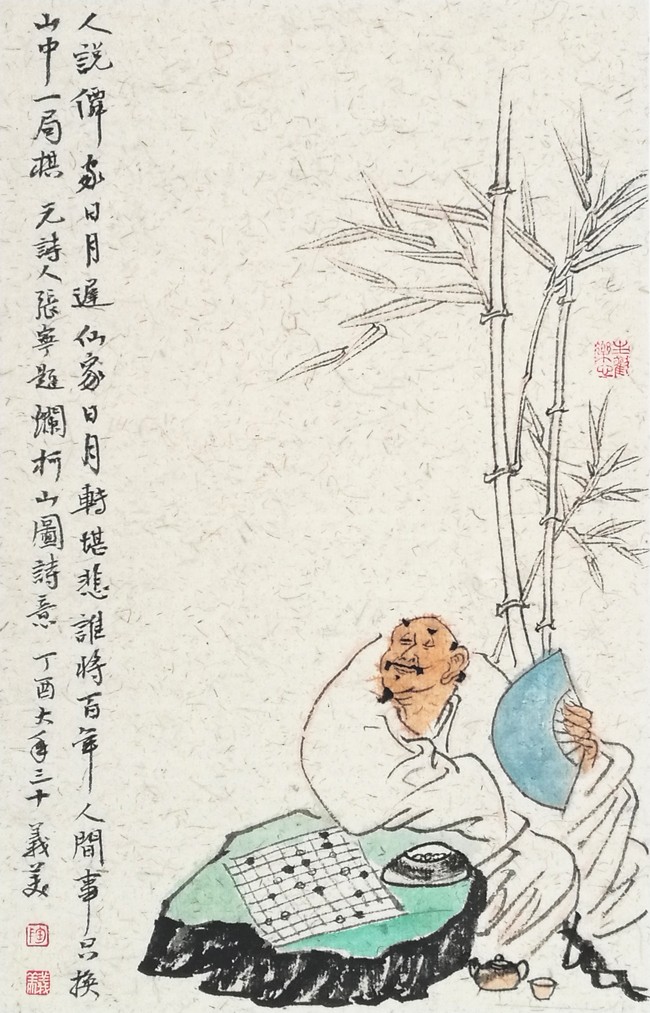 人説僊家日月遲仙家日月轉堪悲誰將百年人間事只換
山中一局棋 元詩人張寧題爛柯山圖詩意 丁酉大年三十 義美